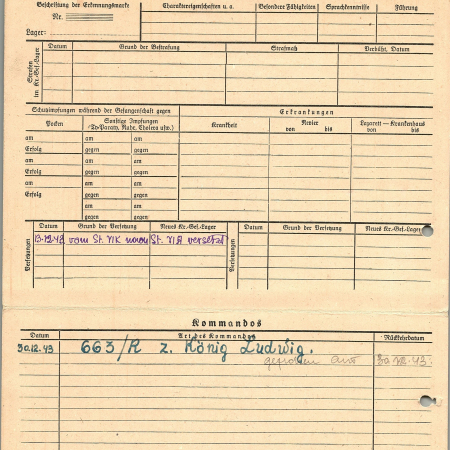 Beschriftung der Erkennungsmarke
Nr.
Lager:
Charaktereigenschaften u. a.
Besondere Fähigkeiten
Sprachkenntnisse
Führung
Strafen im Kr.-Gef.-Lager
Datum
Grund der Bestrafung
Strafmaß
Verbüßt, Datum
Schutzimpfungen während der Gefangenschaft gegen
Erkrankungen
Pocken
Sonstige Impfungen
(Ty-Paraty, Ruhr, Cholera usw.)
Krankheit
Revier
von bis
Lazarett — Krankenhaus
von bis
am am
Erfolg gegen gegen
am am am
Erfolg gegen gegen
am am am
Erfolg gegen gegen
am am
gegen gegen
am am
gegen gegen
Versetzungen
Datum
Grund der Versetzung
Neues Kr.-Gef.-Lager
Versetzungen
Datum
Grund der Versetzung
Neues Kr.-Gef.-Lager
13.12.43 vom St. VI K nach St. VI A versetzt
Kommandos
Datum
Art des Kommandos
Rückkehrdatum
30.12.43 663/R z. König Ludwig.